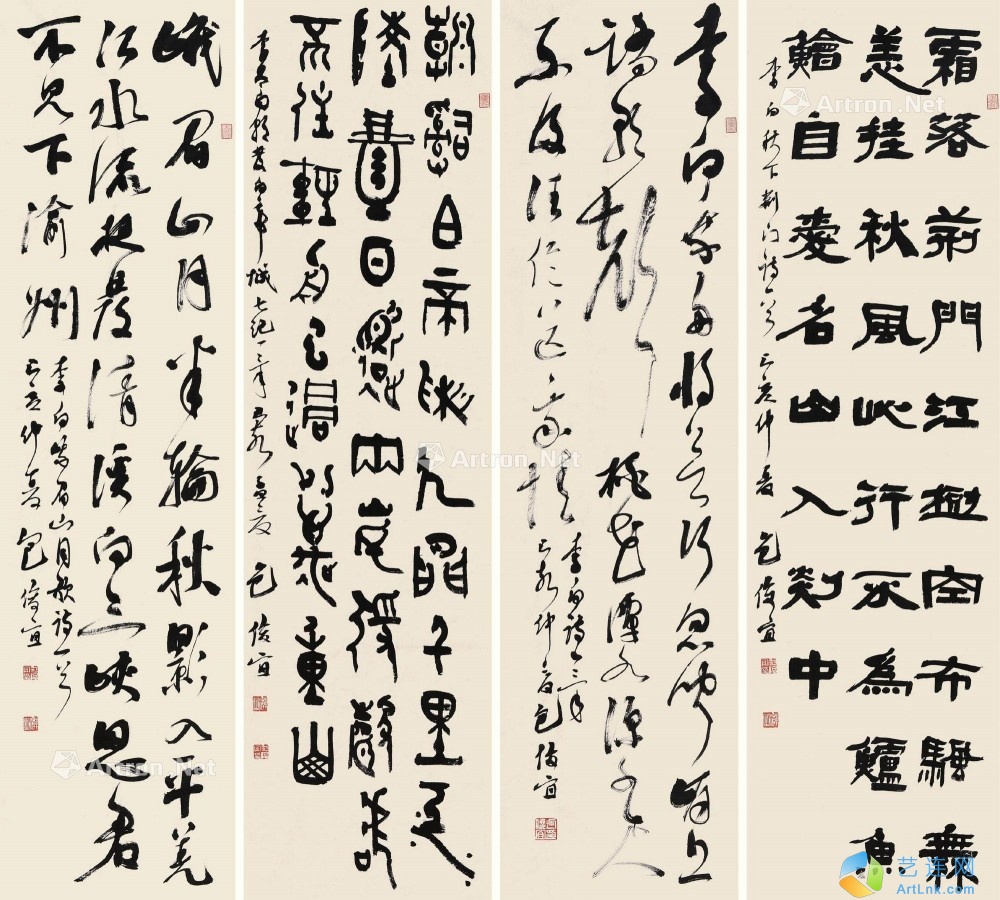 霜落荊門江樹空布颿無
恙挂秋風此行不為鱸魚
鱠自愛名山入剡中
李白秋下荊门诗一首 己亥仲春 包俊宜
李白乘舟將欲行忽聞岸上
踏歌聲桃花潭水深千尺
不及汪倫送我情
李白诗一首
己亥仲春包俊宜
朝辭白帝彩雲間千里江
陵一日還兩岸猿聲啼
不住輕舟已過萬重山
白帝城七绝一首 包俊宜
峨眉山月半輪秋影入平羌
江水流夜發清溪向三峽思君
不見下渝州
李白峨眉山月歌诗一首
己亥仲春 包俊宜
Artron.Net
Artron.Net
Artron.Net
Artron.Net
艺连网
ArtLnk.com